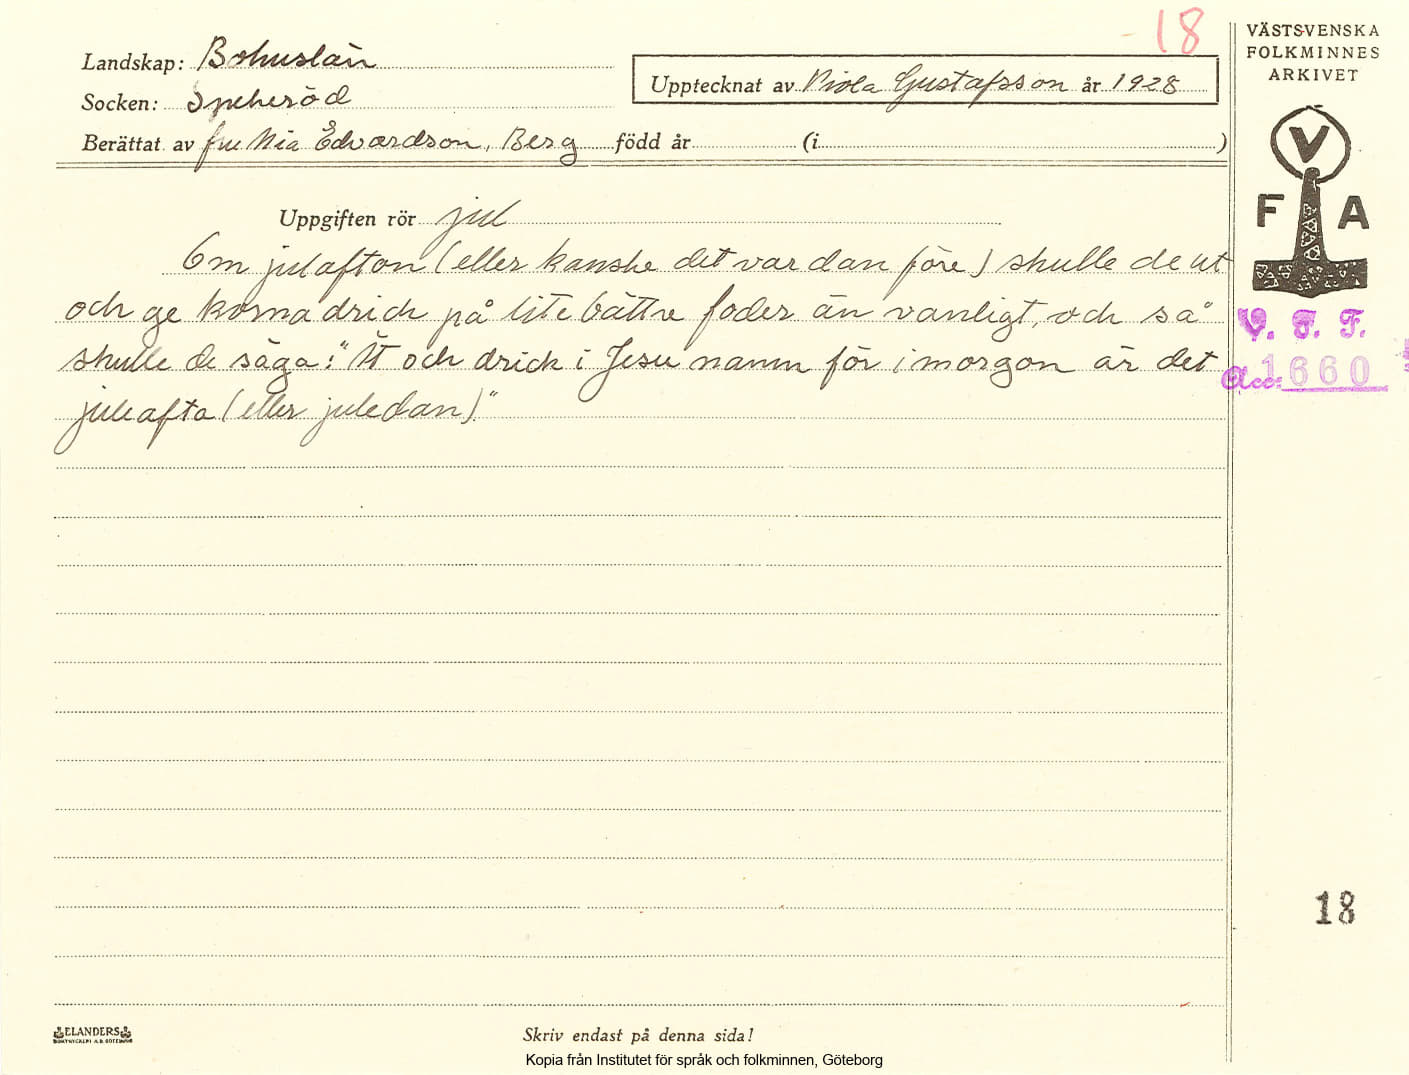 18
VÄSTSVENSKA
FOLKMINNES
ARKIVET
Landskap: Bohuslän
Socken: Spekeröd
Upptecknat av Viola Gustafsson år 1928
Berättat av fru Mia Edvardson, Berg född år (i )
V
F A
Uppgiften rör jul
Om julafton (eller kanske det var dan före) skulle de ut
och ge korna drick på lite bättre foder än vanligt, och så
skulle de säga: "Ät och drick i Jesu namn för i morgon är det
juleafta (eller juledan)."
V. F. F.
Acc: 1660
18
ELANDERS
BOKTRYCKERI A.B. GÖTEBORG
Skriv endast på denna sida!
Kopia från Institutet för språk och folkminnen, Göteborg